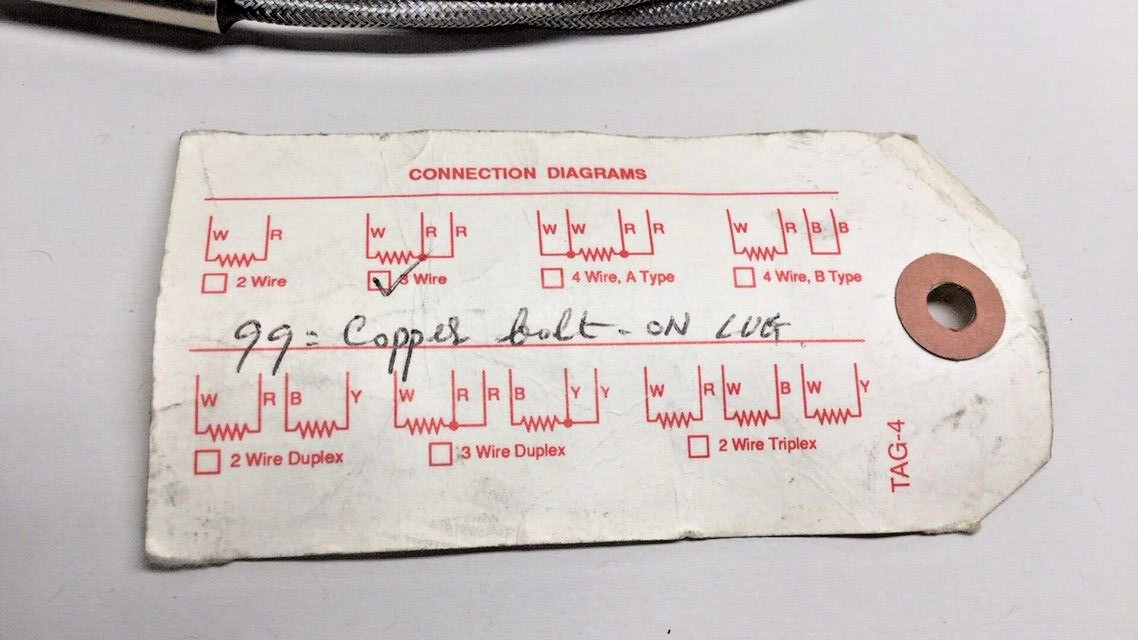 CONNECTION DIAGRAMS
W R W R R W W R R W R B B
2 Wire 3 Wire 4 Wire, A Type 4 Wire, B Type
99= Copper bolt-ON LUG
W R B Y W R R B Y Y W R W B W Y
2 Wire Duplex 3 Wire Duplex 2 Wire Triplex
TAG-4